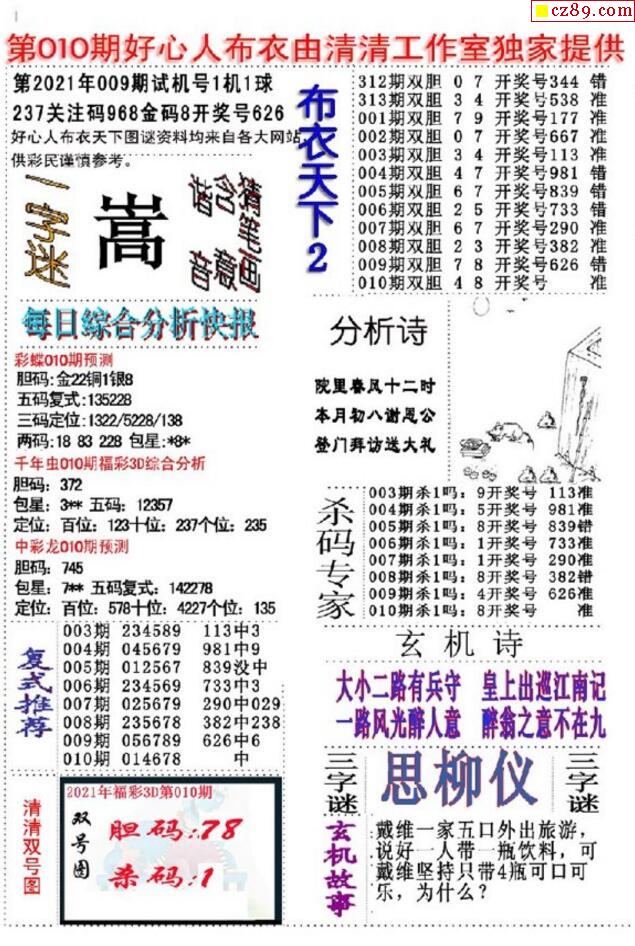 cz89.com
第010期好心人布衣由清清工作室独家提供
第2021年009期试机号1机1球
237关注码968金码8开奖号626
好心人布衣天下图谜资料均来自各大网站,
供彩民谨慎参考。
一字谜
嵩
猜笔画
含意
谐音
每日綜合分析快报
彩蝶010期预测
胆码:金22铜1银8
五码复式:135228
三码定位:1322/5228/138
两码:18 83 228 包星:*8*
千年虫010期福彩3D综合分析
胆码: 372
包星: 3** 五码: 12357
定位: 百位: 123十位: 237个位: 235
中彩龙010期预测
胆码: 745
包星: 7** 五码复式: 142278
定位: 百位: 578十位: 4227个位: 135
复式推荐
003期 234589 113中3
004期 045679 981中9
005期 012567 839没中
006期 234569 733中3
007期 025679 290中029
008期 235678 382中238
009期 056789 626中6
010期 014678 中
清清双号图
2021年福彩3D第010期
双号图
胆码:78
杀码:1
布衣天下2
312期双胆 0 7 开奖号344 错
313期双胆 3 4 开奖号538 准
001期双胆 7 9 开奖号177 准
002期双胆 0 7 开奖号667 准
003期双胆 3 4 开奖号113 准
004期双胆 4 7 开奖号981 错
005期双胆 6 7 开奖号839 错
006期双胆 2 5 开奖号733 错
007期双胆 6 7 开奖号290 准
008期双胆 2 3 开奖号382 准
009期双胆 7 8 开奖号626 错
010期双胆 4 8 开奖号 准
分析诗
院里春风十二时
本月初八谢恩公
登门拜访送大礼
杀码专家
003期杀1吗: 9开奖号 113准
004期杀1吗: 5开奖号 981准
005期杀1吗: 8开奖号 839错
006期杀1吗: 1开奖号 733准
007期杀1吗: 1开奖号 290准
008期杀1吗: 8开奖号 382错
009期杀1吗: 4开奖号 626准
010期杀1吗: 8开奖号 准
玄机诗
大小二路有兵守 皇上出巡江南记
一路风光醉人意 醉翁之意不在九
三字谜
思柳仪
三字谜
玄机故事
戴维一家五口外出旅游,
说好一人带一瓶饮料, 可
戴维坚持只带4瓶可口可
乐, 为什么?